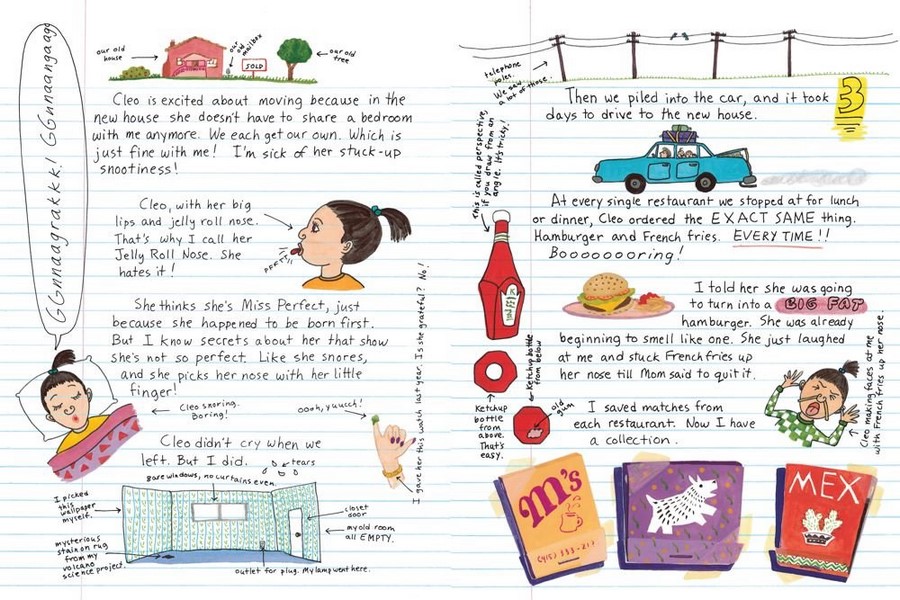 GGnnaagrakkk! GGnnaangaagg
our old
house
our
old
mailbox
SOLD
our old
tree
Cleo is excited about moving because in the
new house she doesn't have to share a bedroom
with me anymore. We each get our own. Which is
just fine with me! I'm sick of her stuck-up
snootiness!
Cleo, with her big
lips and jelly roll nose.
That's why I call her
Jelly Roll Nose. She
hates it!
PFFT!!
She thinks she's Miss Perfect, just
because she happened to be born first.
But I know secrets about her that show
she's not so perfect. Like she snores,
and she picks her nose with her little
finger!
Cleo snoring.
Boring!
oooh, yuuuch!
I gave her this watch last year. Is she grateful? No!
Cleo didn't cry when we
left. But I did.
tears
Bare windows, no curtains even.
I picked
this
wallpaper
myself.
closet
door
my old room
all EMPTY.
mysterious
stain on rug
from my
volcano
science project.
outlet for plug. My lamp went here.
telephone
poles.
We saw
a lot of those.
Then we piled into the car, and it took 3
days to drive to the new house.
this is called perspective,
if you draw from an
angle. It's tricky!
At every single restaurant we stopped at for lunch
or dinner, Cleo ordered the EXACT SAME thing.
Hamburger and French fries. EVERY TIME!!
Boooooooring!
I told her she was going
to turn into a BIG FAT
hamburger. She was already
beginning to smell like one. She just laughed
at me and stuck French fries up
her nose till Mom said to quit it.
Ketchup bottle
from below
Ketchup
bottle
from
above.
That's
easy.
old
gum
I saved matches from
each restaurant. Now I have
a collection.
Cleo making faces at me
with French fries up her nose.
m's
(415) 333-217
MEX